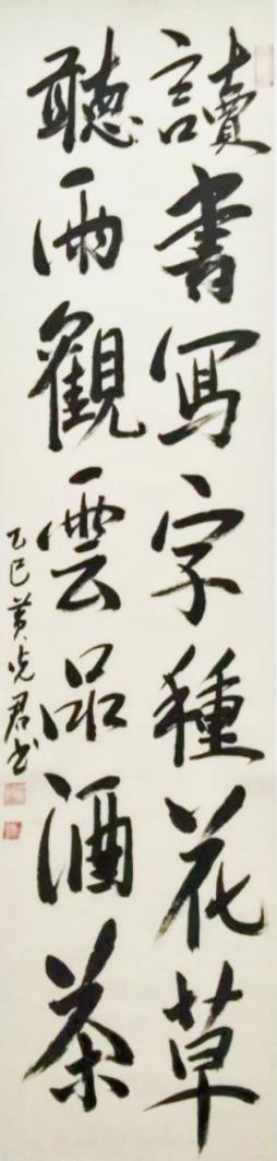 讀書寫字種花草
聽雨觀雲品酒茶
乙巳黃曉君书